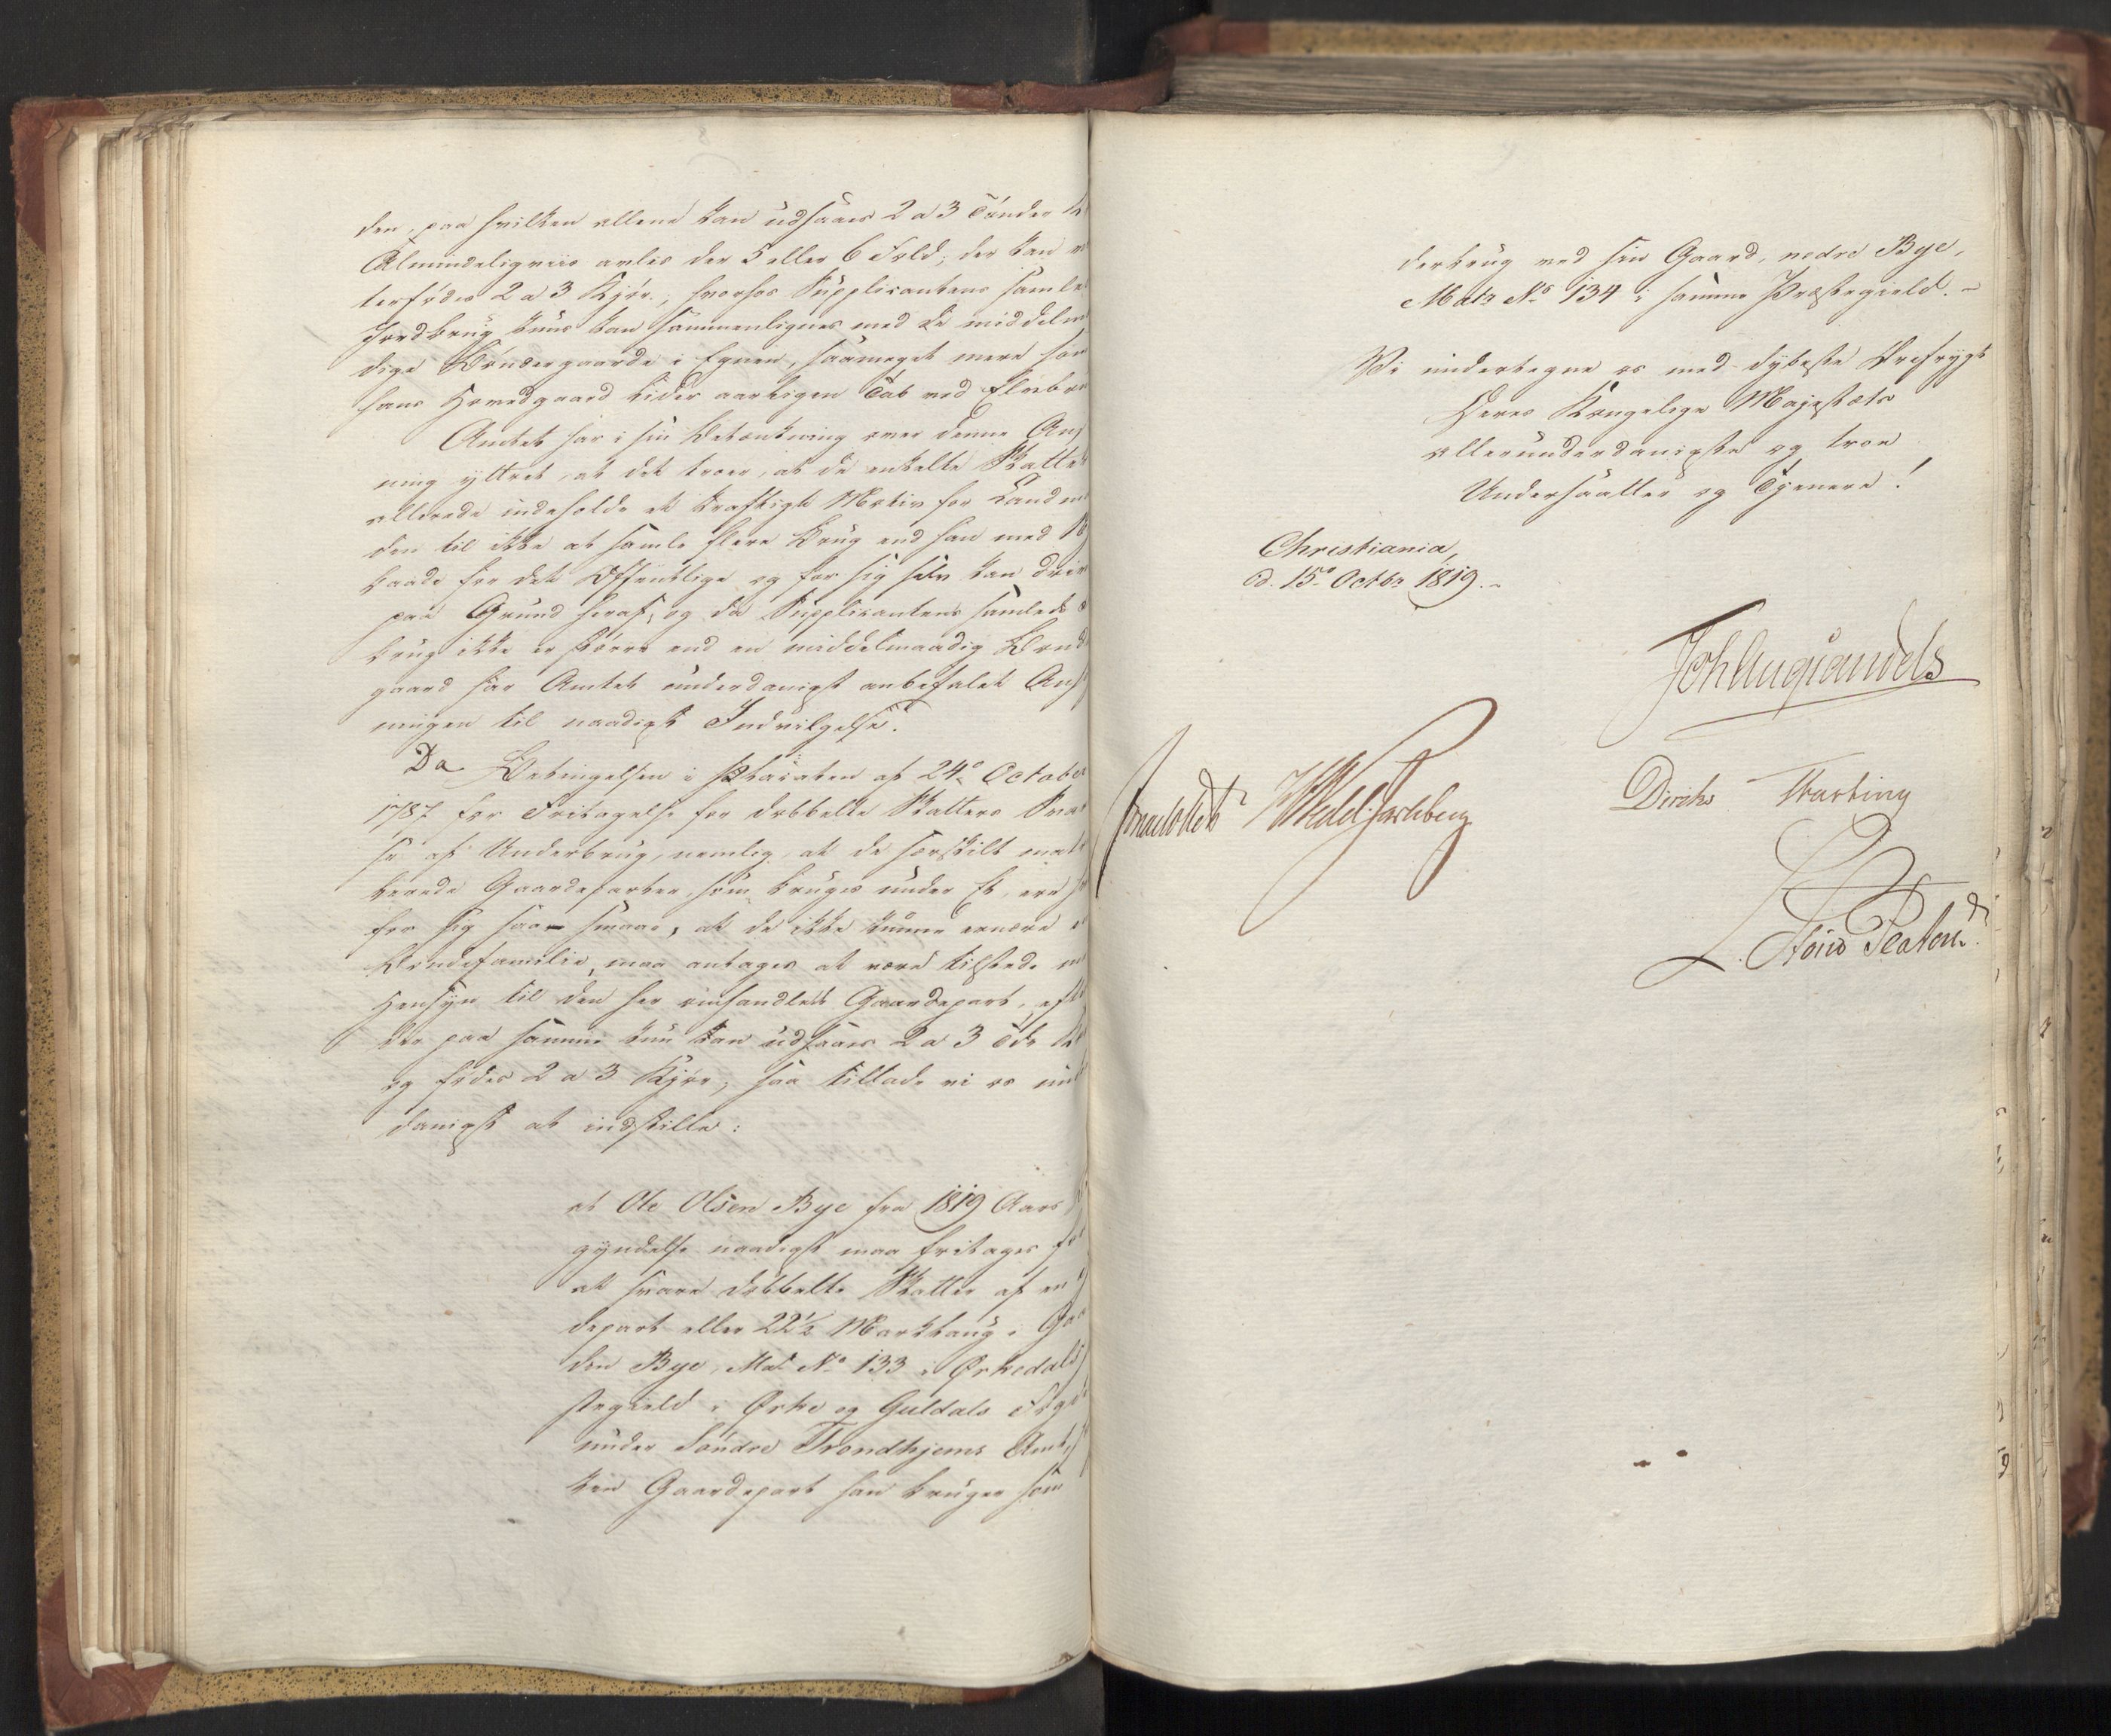 den, paa hvilken allene kan udsaaes 2 a 3 Tønder
Almindeligviis avles der 5 eller 6 Fold; der kan
terfødes 2 a 3 Kjør., hvorhos Supplicantens samle
Jordbrug kuns kan sammenlignes med de middelm
dige Bøndergaarde i Egnen, saameget mere som
hans Hovedgaard lider aarligen Tab ved Elvebr
Amtet har i sin Betænkning over denne Ans
ning yttret, at det troer, at de enkelte Skatter
allerede indeholde et kraftigt Motiv for Landm
den til ikke at samle flere Brug end han med
baade for det Offentlige og for sig selv kan driv
paa Grund heraf, og da Supplicantens samlede
brug ikke er større end en middelmaadig Bonde
gaard har Amtet underdanigst anbefalet Ans
ningen til naadigst Indvilgelse.
Da Betingelsen i Placaten af 24de October
1787 for Fritagelse for dobbelte Skatters Sva
se af Underbrug, nemlig, at de særskilt mat
lerede Gaardeparter, som bruges under Et, ere
for sig saa smaae, at de ikke kunne ernære
Bondefamilie, maa antages at være tilstede
Hensyn til den her omhandlede Gaardepart, eft
der paa samme kun kan udsaaes 2 a 3 Tdr
og fødes 2 a 3 Kjør, saa tillade vi os un
danigst at indstille:
at Ole Olsen Bye fra 1819 Aars
gyndelse naadigst maa fritages for
at svare dobbelte Skatter af en
depart eller 22½ Marklaug i Gaa
den Bye, Mat No 133 i Ørkedals
stegield i Ørke og Guldals Fog
under Søndre Trondhjems Amt,
ken Gaardepart han bruger som
derbrug ved sin Gaard, nedre Bye,
Matr No 134 i samme Præstegield. -
Vi undertegne os med dybeste Ærefrygt
Deres Kongelige Majestæts
allerunderdanigste og troe
Undersaatter og Tjenere!
Christiania,
d. 15de Octbr 1819. -
Joh Aug Sandels
Sommerhielm WedelJarlsberg
Diriks Motzfeldt